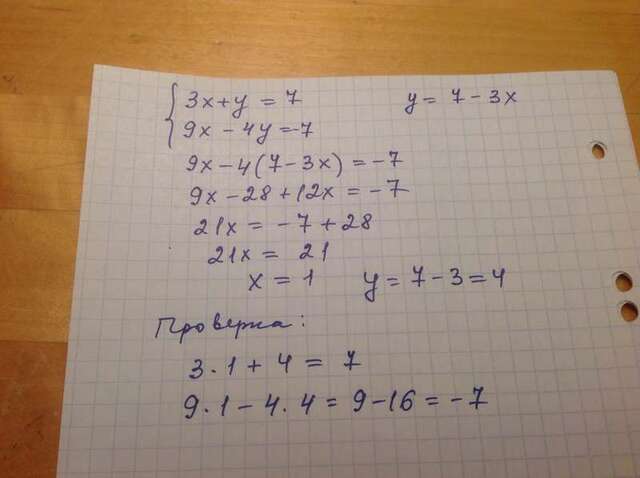 3x+y = 7 y = 7 - 3x
9x - 4y = -7
9x - 4(7 - 3x) = -7
9x - 28 + 12x = -7
21x = -7 + 28
21x = 21
x = 1 y = 7 - 3 = 4
Проверка:
3 · 1 + 4 = 7
9 · 1 - 4 · 4 = 9 - 16 = -7